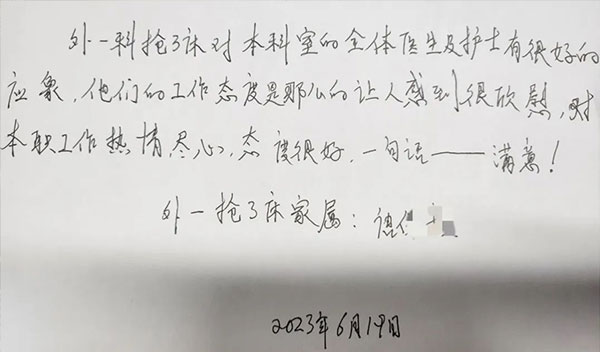 外一科抢3床对本科室的全体医生及护士有很好的
应象,他们的工作态度是那么的让人感到很欣慰,对
本职工作热情,尽心,态度很好,一句话——满意!
外一抢3床家属:德
2023年6月19日